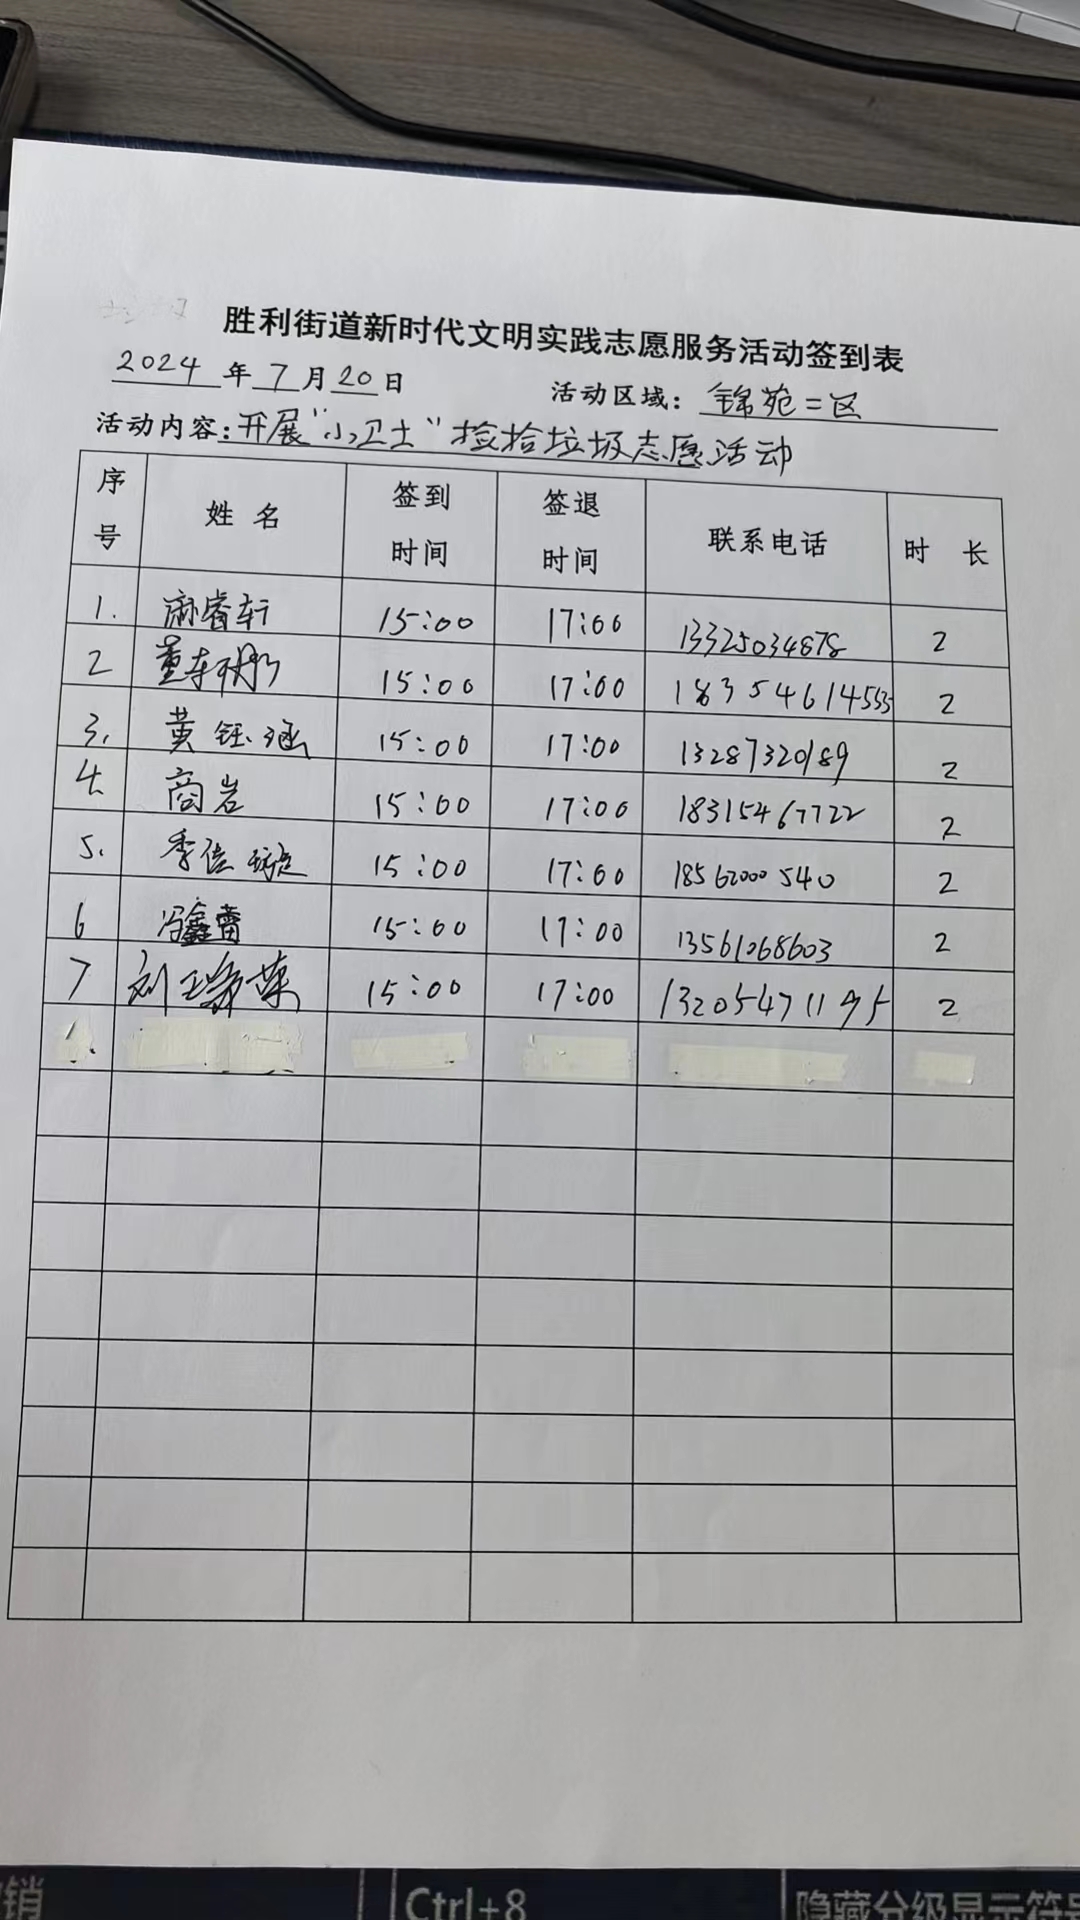 胜利街道新时代文明实践志愿服务活动签到表
2024年7月20日 活动区域：锦苑二区
活动内容：开展“小卫士”捡拾垃圾志愿活动
序号 姓名 签到时间 签退时间 联系电话 时长
1. 麻睿轩 15:00 17:00 13325034878 2
2 董轩彤 15:00 17:00 18354614555 2
3. 黄钰涵 15:00 17:00 13287320189 2
4. 商岩 15:00 17:00 18315467722 2
5. 李佳璇 15:00 17:00 18562000540 2
6 冯鑫蕾 15:00 17:00 13561068603 2
7 刘 15:00 17:00 13205471195 2
销 Ctrl+8 隐藏分级显示符号